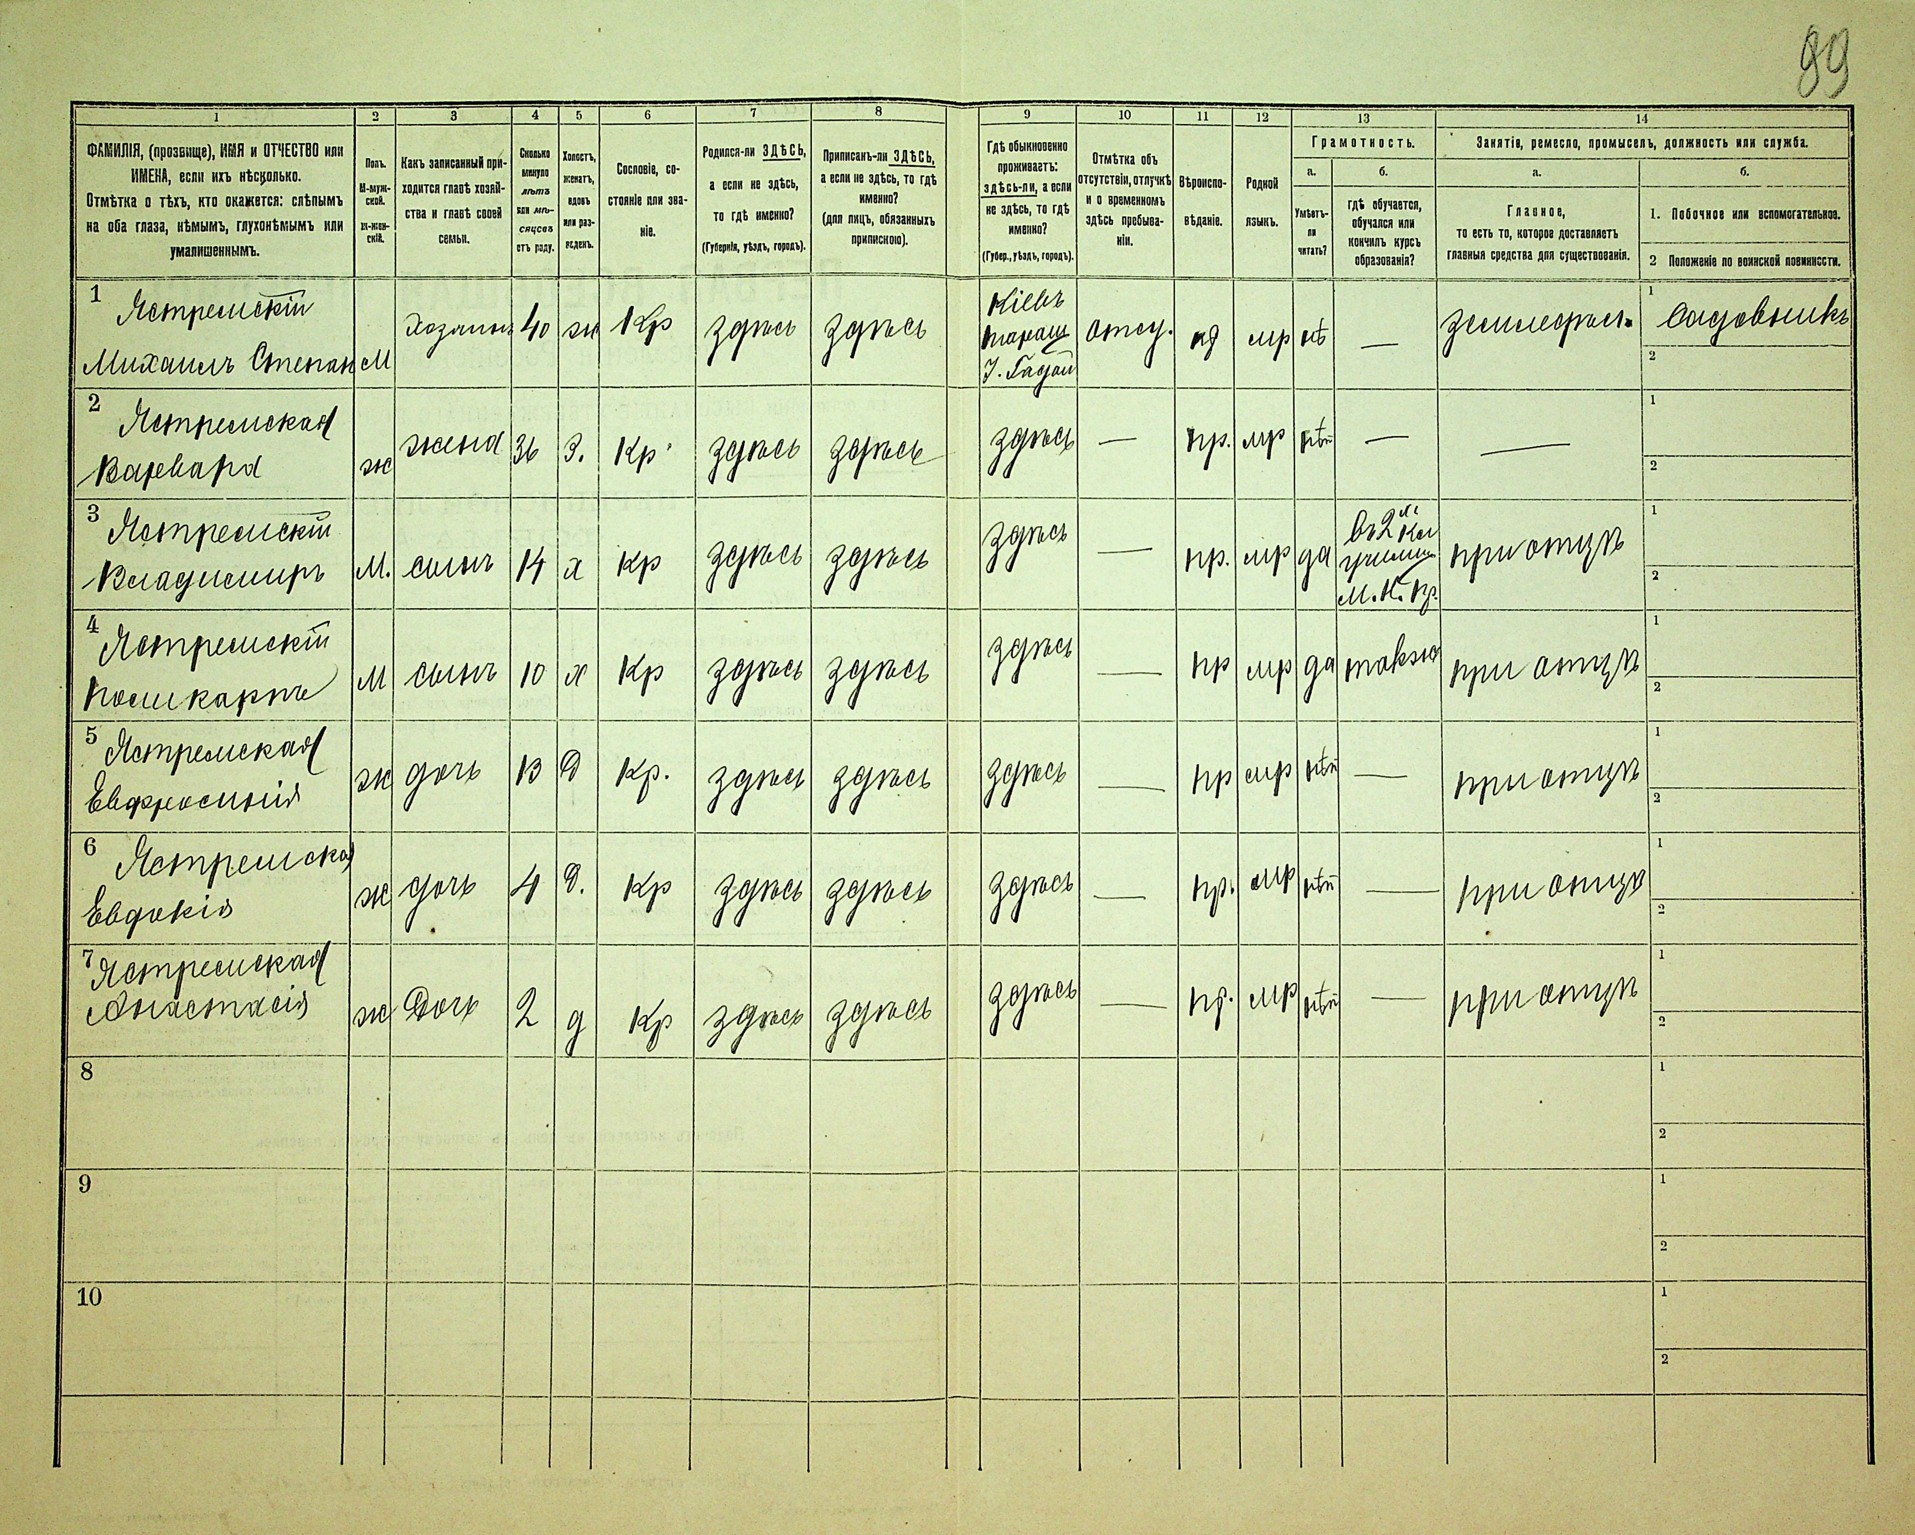 89
1 2 3 4 5 6 7 8 9 10 11 12 13 14
ФАМИЛІЯ, (прозвище), ИМЯ и ОТЧЕСТВО или
ИМЕНА, если ихъ нѣсколько.
Отмѣтка о тѣхъ, кто окажется: слѣпымъ
на оба глаза, нѣмымъ, глухонѣмымъ или
умалишеннымъ.
Полъ.
М-муж-
ской.
ж-жен-
скій.
Какъ записанный при-
ходится главѣ хозяй-
ства и главѣ своей
семьи.
Сколько
минуло
лѣтъ
или мѣ-
сяцевъ
отъ роду.
Холостъ,
женатъ,
вдовъ
или раз-
веденъ.
Сословіе, со-
стояніе или зва-
ніе.
Родился-ли ЗДѢСЬ,
а если не здѣсь,
то гдѣ именно?
(Губернія, уѣздъ, городъ).
Приписанъ-ли ЗДѢСЬ,
а если не здѣсь, то гдѣ
именно?
(для лицъ, обязанныхъ
припискою).
Гдѣ обыкновенно
проживаетъ:
здѣсь-ли, а если
не здѣсь, то гдѣ
именно?
(Губер., уѣздъ, городъ).
Отмѣтка объ
отсутствіи, отлучкѣ
и о временномъ
здѣсь пребыва-
ніи.
Вѣроиспо-
вѣданіе.
Родной
языкъ.
Грамотность.
а.
Умѣетъ-
ли
читать?
б.
гдѣ обучается,
обучался или
кончилъ курсъ
образованія?
Занятіе, ремесло, промыселъ, должность или служба.
а.
Главное,
то есть то, которое доставляетъ
главныя средства для существованія.
б.
1. Побочное или вспомогательное.
2 Положеніе по воинской повинности.
1 Ястремскій
Михаилъ Степан М хозяинъ 40 ж Кр здѣсь здѣсь
Кіевъ
таращ
отсу. мр нѣ — 1 Садовникъ
2
2 Ястремская
Варвара ж жена 36 З. Кр здѣсь здѣсь здѣсь — пр. мр нѣт — —
1
2
3 Ястремскій
Владимиръ М. сынъ 14 х Кр здѣсь здѣсь здѣсь — пр. мр да
въ 2х Кл
училищ
М. Н. Пр.
при отцѣ
1
2
4 Ястремскій
Поликарпъ М сынъ 10 х Кр здѣсь здѣсь здѣсь — пр мр да также при отцѣ
1
2
5 Ястремская
Евфросинія ж дочь 13 Д Кр. здѣсь здѣсь здѣсь — пр мр нѣт — при отцѣ
1
2
6 Ястремская
Евдокія ж дочь 4 Д. Кр здѣсь здѣсь здѣсь — пр. мр нѣт — при отцѣ
1
2
7 Ястремская
Анастасія ж Дочь 2 д Кр здѣсь здѣсь здѣсь — пр. мр нѣт — при отцѣ
1
2
8
1
2
9
1
2
10
1
2